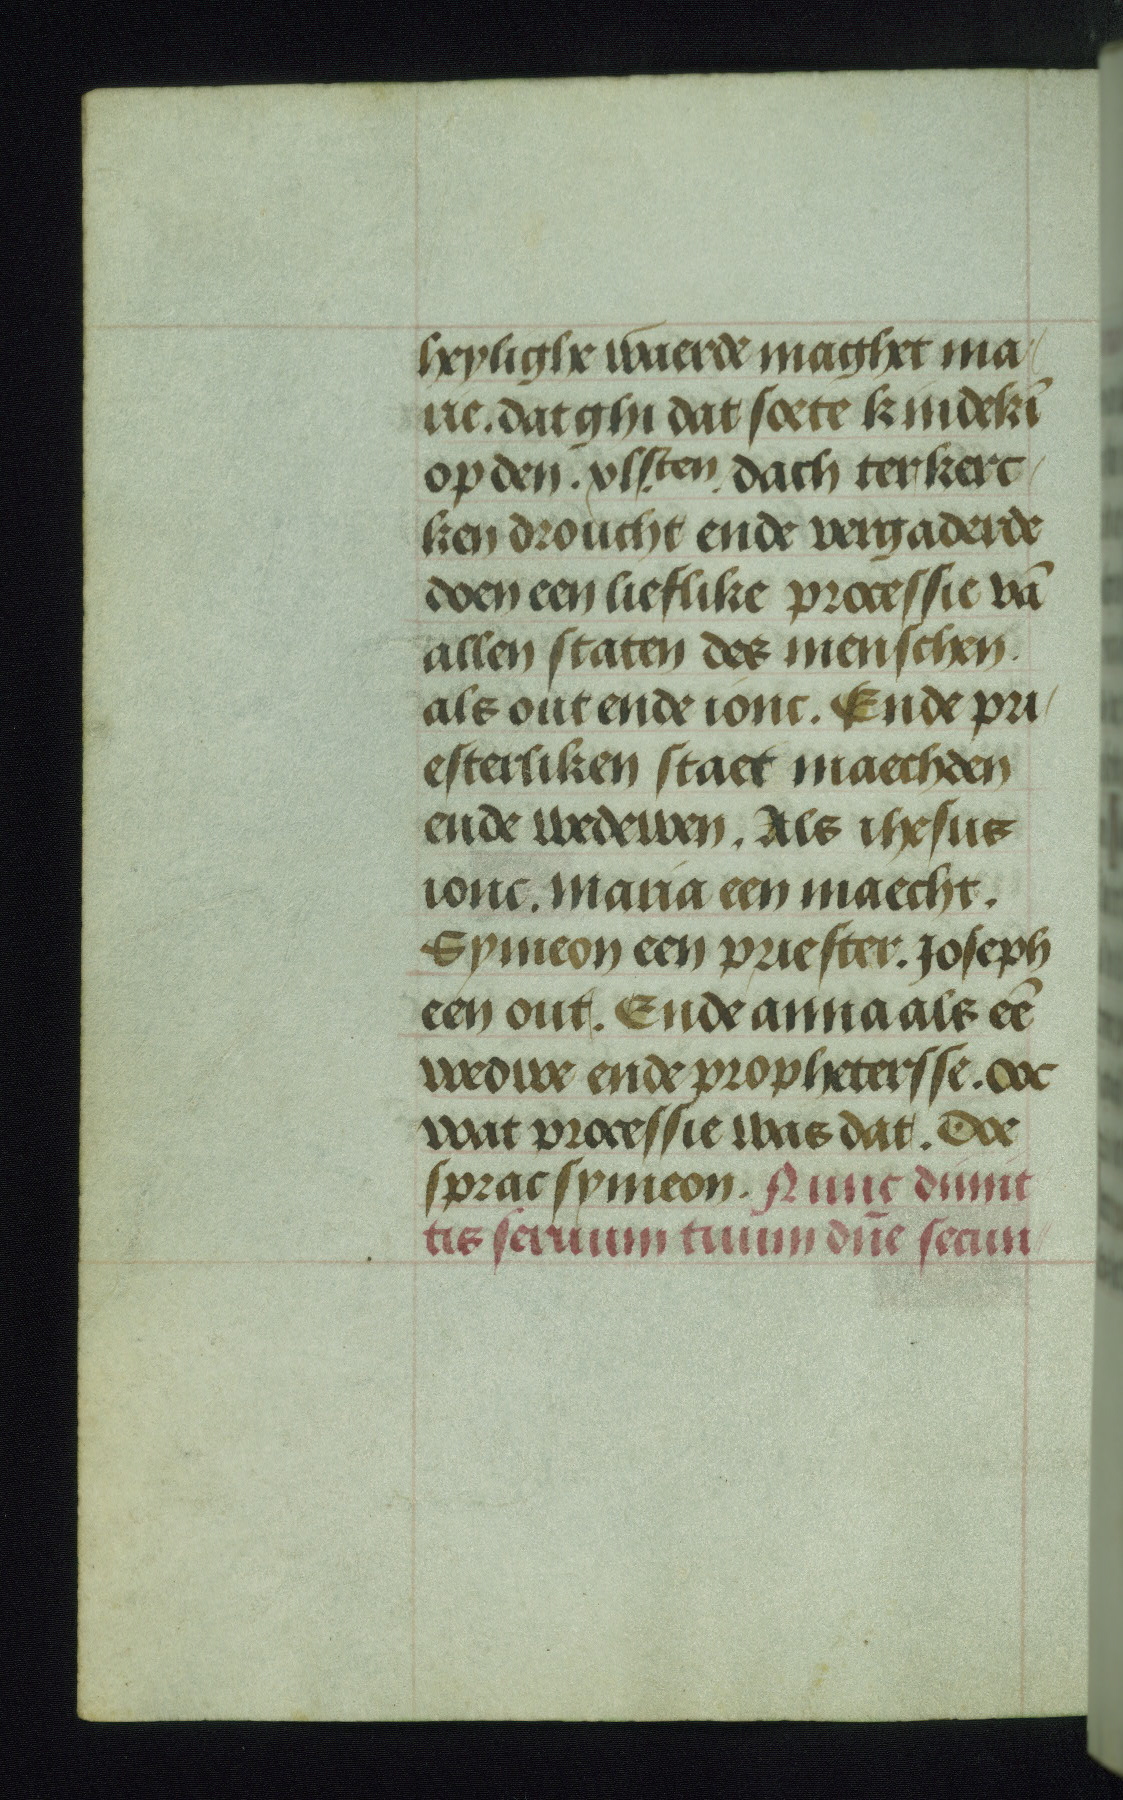 heylighe waerde maghet ma/
rie. dat ghi dat soete kindekī
op den. xlsten. dach ter kerc/
ken droucht ende vergaderde
doen een lieflike processie vā
allen staten des menschen.
als out ende ionc. Ende pri/
esterliken staet maechden
ende wedewen. Als ihesus
ionc. Maria een maecht.
Symeon een priester. Joseph
een out. Ende anna als eē
wedwe ende prophetersse. Ooc
wat processie was dat. Doe
sprac symeon. Nunc dimit
tis seruum tuum dn̄e secun/